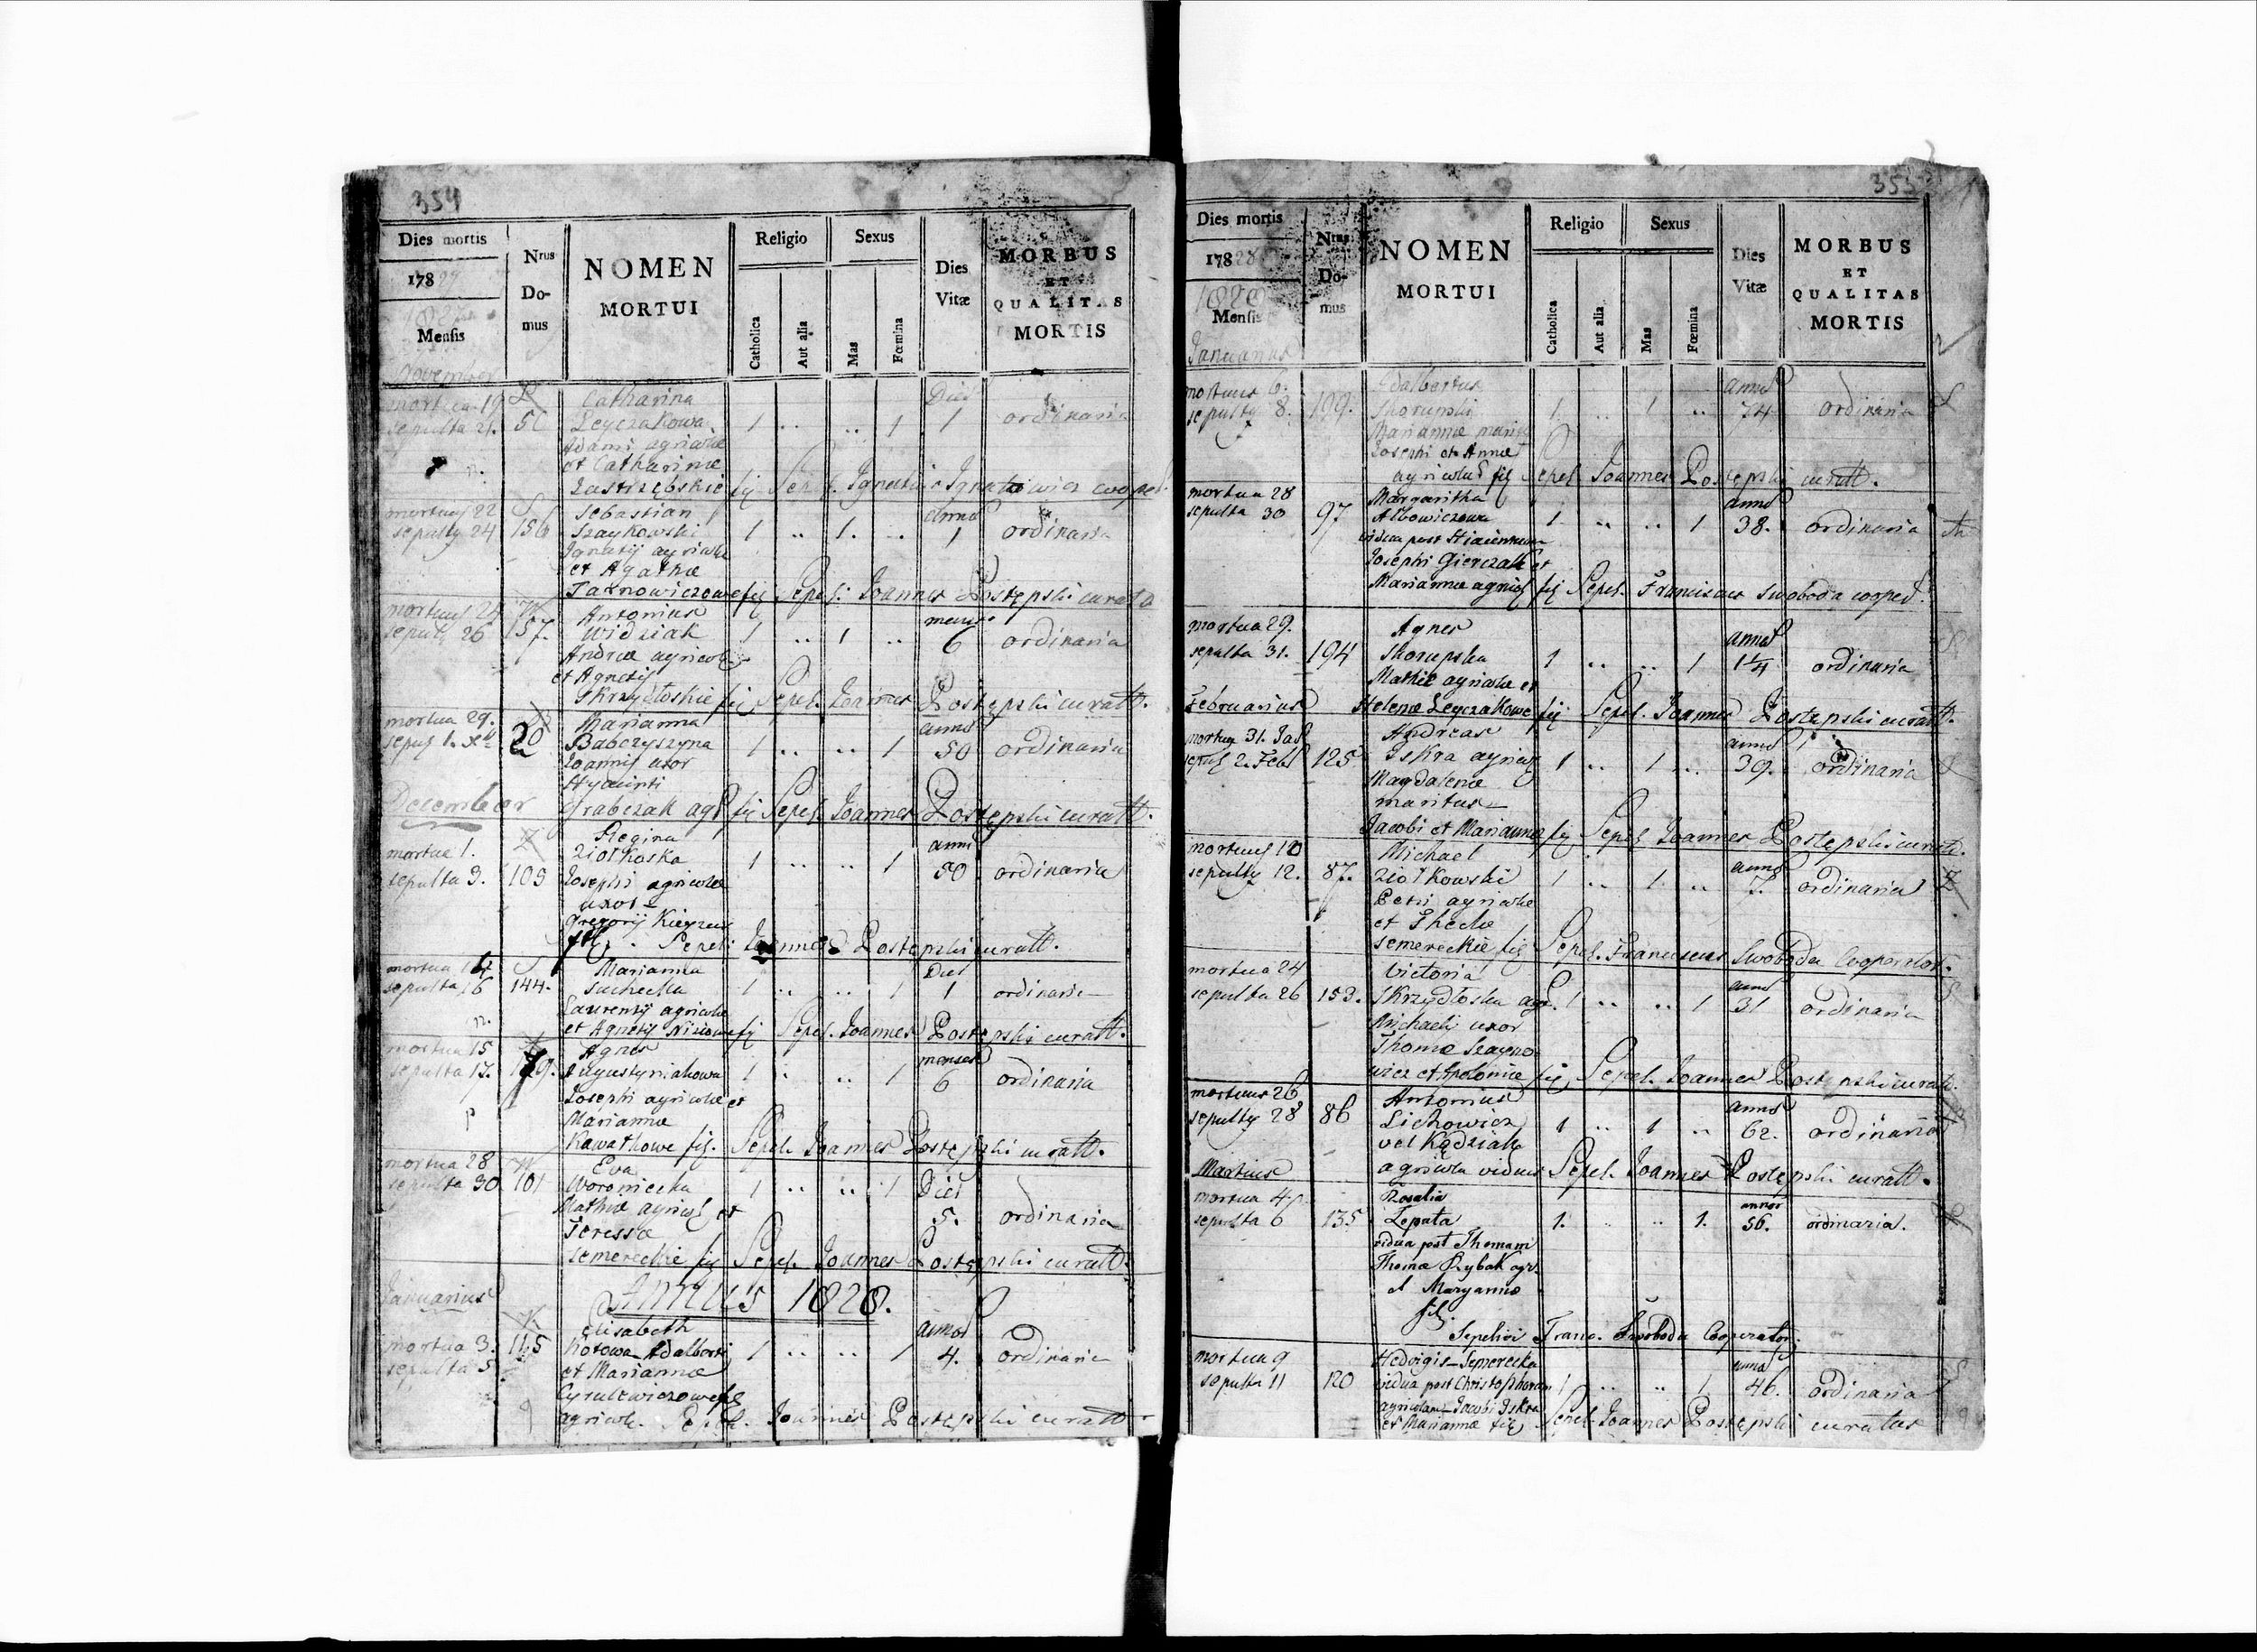 354
Dies mortis
178 27
Mensis
November
Nrus
Do-
mus
NOMEN
MORTUI
Religio
Catholica
Aut alia
Sexus
Mas
Fœmina
Dies
Vitæ
MORBUS
ET
QUALITAS
MORTIS
mortua 19
sepulta 21.
Catharina
Leyczakowa
Adami agricolæ
et Catharinæ
Jastrzębskie fij Sepel. Ignatius Ignatowicz cooper
1 .. .. 1
Dies
1
ordinaria
sepulty 24
156
Sebastian
Szaykowski
Ignatij agricolæ
et Agathæ
Tarnowiczowe fij Sepel: Joannes Postępski curatt
1 .. 1. ..
1
ordinaria
sepult 26
157.
Antonius
Widziak
Andreæ agricolæ
et Agnetis
Skrzydłoskie fij Sepel. Joannes Postępski curatt.
1 .. 1 ..
6
ordinaria
mortua 29.
20
Marianna
Babczyszyna
Joannis uxor
Hyacinti
Grabczak agr fij Sepel. Joannes Postępski curatt.
1 .. .. 1
anno
50
ordinaria
December
mortua 1.
sepulta 3.
103
Regina
Ziołkoska
Josephi agricolæ
uxor
Gregorij
Sepel: Joannes Postępski curatt.
1 .. .. 1
anni
50
ordinaria
mortua 14
sepulta 16
144.
Marianna
Suchecka
Laurentij agricolæ
et Agnetis fij Sepel. Joannes Postępski curatt.
1 .. .. 1
Dies
1
ordinaria
mortua 15
sepulta 17.
Agnes
Augustyniakowa
Josephi agricolæ et
Mariannæ
Kawałkowe fij. Sepel. Joannes Postępski curatt.
1 .. .. 1
menses
6
ordinaria
mortua 28
sepulta 30
101
Eva
Woroniecka
Mathiæ agricol et
Teressæ
Semereckie fij Sepel. Joannes Postępski curatt.
1 .. .. 1
Dies
5.
ordinaria
Januarius
Annus 1828.
mortua 3.
sepulta 5
115
Elisabeth
Kotowa Adalberti
et Mariannæ
Cyrulewiczowe
agricolæ. Sepel. Joannes Postępski curatt
1 .. .. 1
annos
4.
ordinaria
355
Dies mortis
178 28
1828
Mensis
Januarius
Nrus
Do-
mus
NOMEN
MORTUI
Religio
Catholica
Aut alia
Sexus
Mas
Fœmina
Dies
Vitæ
MORBUS
ET
QUALITAS
MORTIS
mortuus 6.
sepulty 8.
199.
Adalbertus
Skorupski
Mariannæ
Josephi et Annæ
agricolæ fij Sepel. Joannes Postępski curatt.
1. .. 1 ..
annos
74
ordinaria
mortua 28
sepulta 30
97
Margaritha
vidua post
Josephi Gierczak et
Mariannæ agricol fij Sepel. Franciscus Swoboda cooper.
1. .. .. 1
anno
38.
ordinaria
mortua 29.
sepulta 31.
194
Agnes
Skorupska
Mathiæ agricolæ et
Helenæ Leyczakowe fij Sepel. Joannes Postępski curatt.
1 .. .. 1
annos
1 1/4
ordinaria
Februarius
mortuus 31. Jan
sepul 2. Feb
125
Andreas
Iskra agricol
Magdalenæ
maritus
Jacobi et Mariannæ fij Sepel Joannes Postępski curatt.
1 .. 1 ..
annos
39.
ordinaria
mortuus 10
sepulty 12.
87.
Michael
Ziołkowski
Petri agricolæ
et Theclæ
Semereckie fij Sepel. Franciscus Swoboda Cooperator.
1 .. 1. ..
annos
7.
ordinaria
mortua 24
sepulta 26
153.
Victoria
Skrzydłoska agr.
Michaeli uxor
Thomæ Szayno-
wicz et Apoloniæ fij, Sepel. Joannes Postępski curatt.
1 .. .. 1
annos
31
ordinaria
mortuus 26
sepulty 28
86
Antonius
Lichowicz
vel Kądziak
agricola viduus Sepel. Joannes Postępski curatt.
1 .. 1 ..
annos
62.
ordinaria
Martius
mortua 4
sepulta 6
135
Rosalia
Łepata
vidua post Thomam
Thomæ Rybak agr.
et Maryannæ
fil.
Sepelivi Franc. Swoboda Cooperator.
1. .. .. 1.
annos
56.
ordinaria.
mortua 9
sepulta 11
120
Hedvigis Semerecka
vidua post Christophorum
agricolam Jacobi Iskra
et Mariannæ fij Sepel. Joannes Postępski curatus
1 .. .. 1
annos
46.
ordinaria